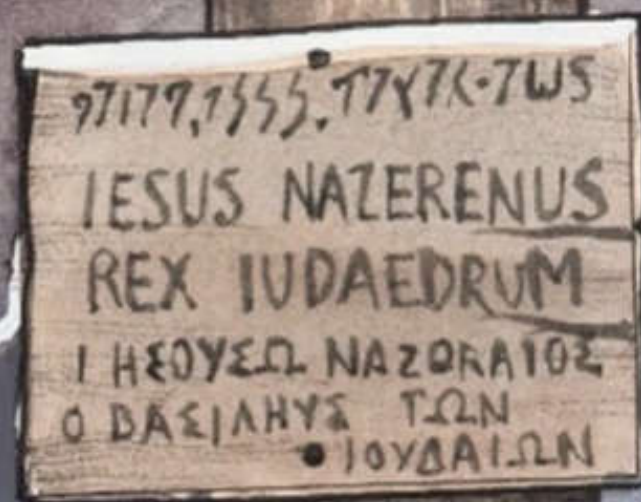 IESUS NAZERENUS
REX IUDAEDRUM
I HΣΟΥΣΩ ΝΑΖΩRΑΙΟΣ
Ο ΒΑΣΙΛΗΥΣ ΤΩΝ
ΙΟΥΔΑΙΩΝ